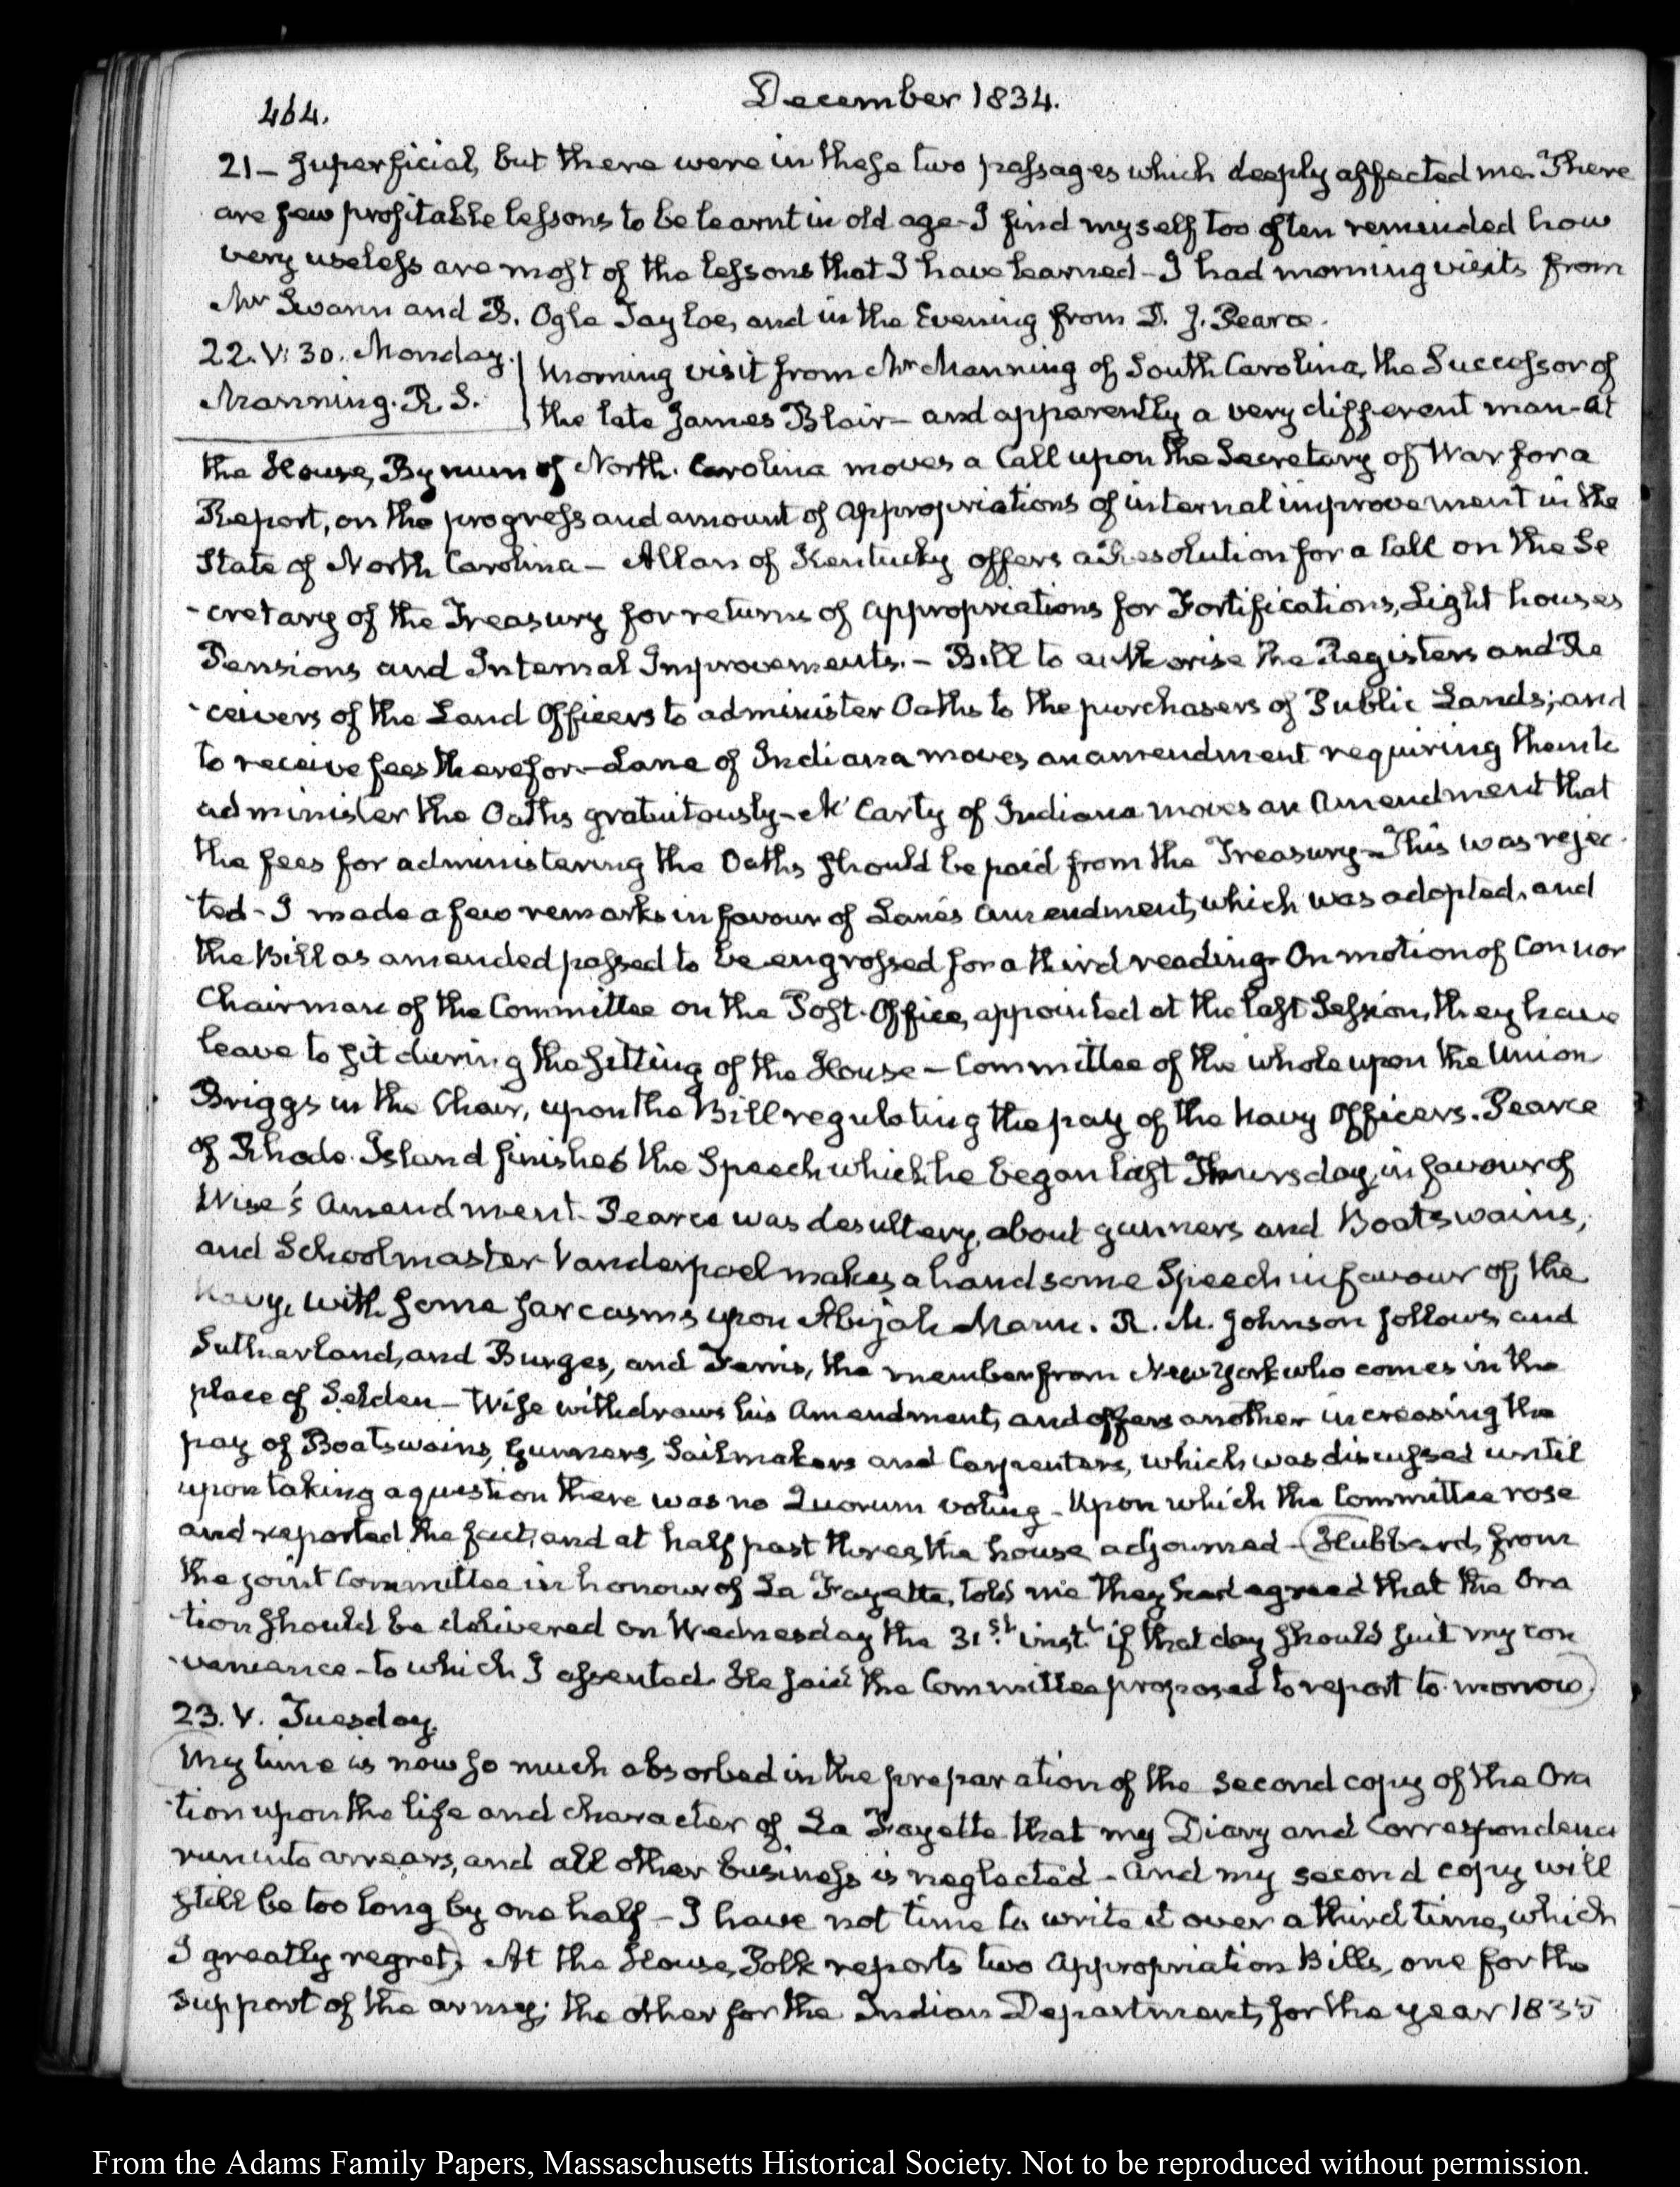 464.
December 1834.
21 — superficial, but there were in these two passages which deeply affected me. There
are few profitable lessons to be learnt in old age - I find myself too often reminded how
very useless are most of the lessons that I have learned - I had morning visits from
Mr Swann and B. Ogle Tayloe, and in the Evening from D. J. Pearce.
22. V: 30. Monday.
Manning. R. I.
Morning visit from Mr Manning of South Carolina, the Successor of
the late James Blair - and apparently a very different man - At
the House, Bynum of North Carolina moves a Call upon the Secretary of War for a
Report, on the progress and amount of appropriations of internal improvement in the
State of North Carolina — Allan of Kentucky offers a Resolution for a Call on the Se
-cretary of the Treasury for returns of appropriations for Fortifications, Light houses
Pensions and Internal Improvements. - Bill to authorise the Registers and Re
-ceivers of the Land Officers to administer Oaths to the purchasers of Public Lands; and
to receive fees therefor - Lane of Indiana moves an amendment requiring them to
administer the Oaths gratuitously - McCarty of Indiana moves an Amendment that
the fees for administering the Oaths should be paid from the Treasury - This was rejec
-ted - I made a few remarks in favour of Lane's Amendment, which was adopted, and
the Bill as amended passed to be engrossed for a third reading. On motion of Connor
Chairman of the Committee on the Post-Office, appointed at the last Session, they have
leave to sit during the sitting of the House — Committee of the whole upon the Union
Briggs in the Chair, upon the Bill regulating the pay of the Navy Officers. Pearce
of Rhode-Island finishes the Speech which he began last Thursday, in favour of
Wise's Amendment. Pearce was desultory, about gunners and Boatswains,
and Schoolmaster - Vanderpoel makes a handsome Speech in favour of the
Navy, with some sarcasms upon Abijah Mann. R. M. Johnson follows, and
Sutherland, and Burges, and Ferris, the member from New York who comes in the
place of Selden - Wise withdraws his Amendment, and offers another increasing the
pay of Boatswains, Gunners, Sailmakers and Carpenters, which was discussed until
upon taking a question there was no Quorum voting - Upon which the Committee rose
and reported the fact, and at half past three, the house adjourned - Hubbard, from
the joint Committee in honour of La Fayette, told me they had agreed that the Ora
-tion should be delivered on Wednesday the 31st. inst. if that day should suit my con
-venience - to which I assented. He said the Committee proposed to report to-morrow.
23. V. Tuesday.
My time is now so much absorbed in the preparation of the second copy of the Ora
-tion upon the life and character of La Fayette that my Diary and Correspondence
run into arrears, and all other business is neglected - and my second copy will
still be too long by one half - I have not time to write it over a third time, which
I greatly regret. At the House, Polk reports two Appropriation Bills, one for the
support of the army; the other for the Indian Department, for the year 1835
From the Adams Family Papers, Massaschusetts Historical Society. Not to be reproduced without permission.